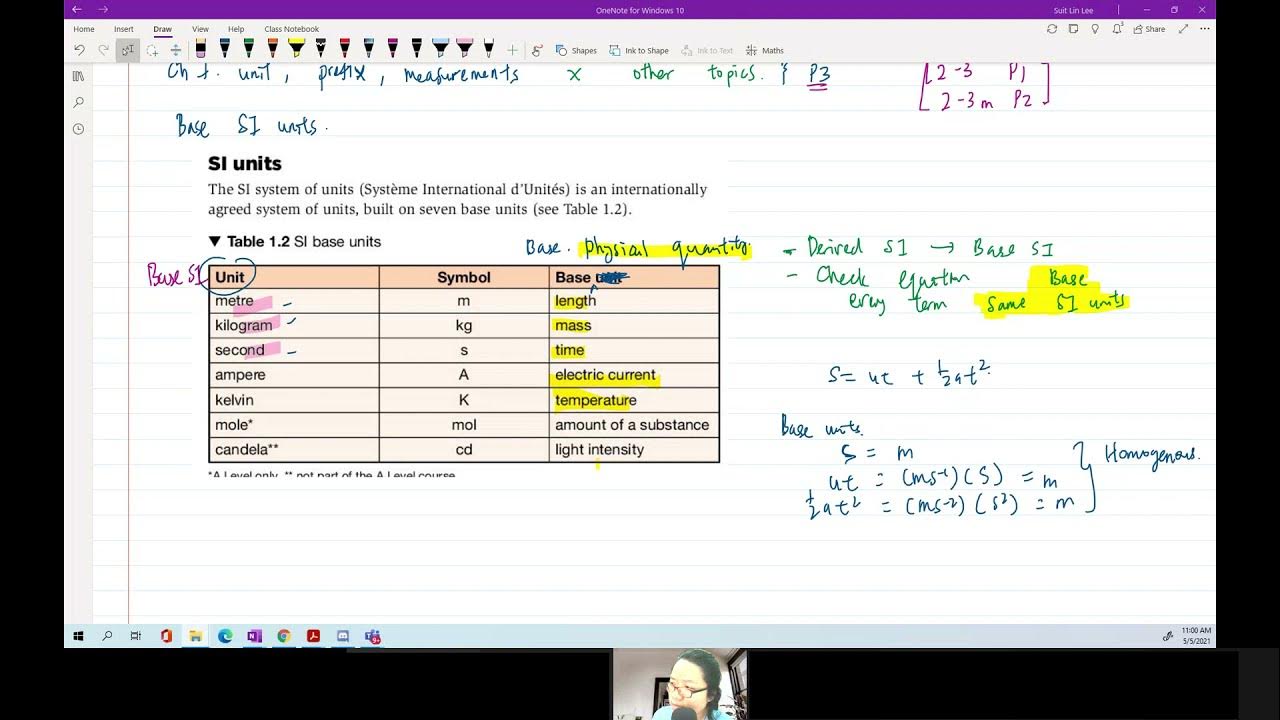 OneNote for Windows 10
Suit Lin Lee
Home Insert Draw View Help Class Notebook
Share
Shapes Ink to Shape Ink to Text Maths
Ch 1. unit, prefix, measurements x other topics. & P3
2-3 P1
2-3m P2
Base SI units.
SI units
The SI system of units (Système International d'Unités) is an internationally
agreed system of units, built on seven base units (see Table 1.2).
▼ Table 1.2 SI base units
Base. physical quantity.
Base SI
Unit Symbol Base
metre m length
kilogram kg mass
second s time
ampere A electric current
kelvin K temperature
mole* mol amount of a substance
candela** cd light intensity
*A Level only ** not part of the A Level course
- Derived SI → Base SI
- Check equation Base
every term same SI units
s = ut + ½at².
Base units.
s = m
ut = (ms⁻¹)(s) = m
½at² = (ms⁻²)(s²) = m
Homogenous.
11:00 AM
5/5/2021